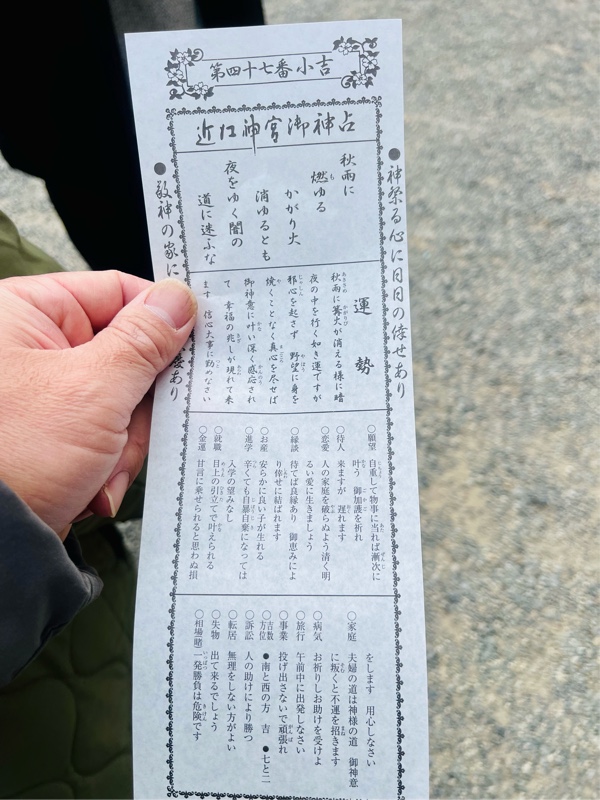 第四十七番小吉
近江神宮御神占
●神祭る心に日日の倖せあり
秋雨に
燃ゆる
かがり火
消ゆるとも
夜をゆく闇の
道に迷ふな
●敬神の家に
あり
運勢
秋雨に篝火が消える様に暗
夜の中を行く如き運ですが
邪心を起さず 野望に身を
焼くことなく真心を尽せば
御神意に叶い深く感応され
て 幸福の兆しが現れて来
ます 信心大事に勤めなさい
○願望 自重して物事に当れば漸次に
叶う 御加護を祈れ
○待人 来ますが 遅れます
○恋愛 人の家庭を破らぬよう清く明
るい愛に生きましょう
○縁談 待てば良縁あり 御恵みによ
り倖せに結ばれます
○お産 安らかに良い子が生れる
○進学 辛くても自暴自棄になっては
入学の望みなし
○就職 目上の引立てで叶えられる
○金運 甘言に乗せられると思わぬ損
をします 用心しなさい
○家庭 夫婦の道は神様の道 御神意
に叛くと不運を招きます
○病気 お祈りしお助けを受けよ
○旅行 午前中に出発しなさい
○事業 投げ出さないで頑張れ
○吉数方位 ●南と西の方 吉 ●七と二
○訴訟 人の助けにより勝つ
○転居 無理をしない方がよい
○失物 出て来るでしょう
○相場賭 一発勝負は危険です